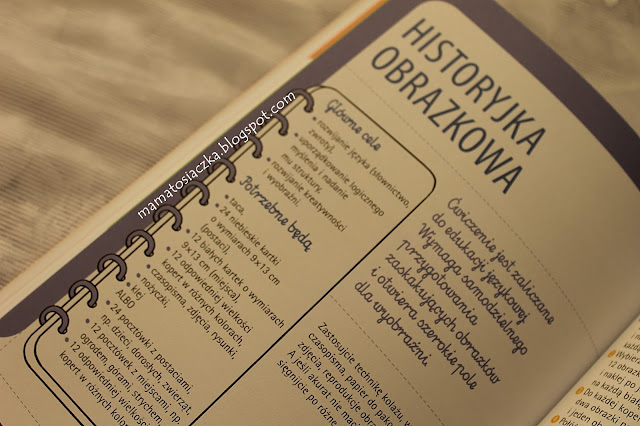 HISTORYJKA
OBRAZKOWA
mamatosiaczka.blogspot.com
Główne cele
• rozwijanie języka (słownictwo,
zwroty),
• uporządkowanie logicznego
myślenia i nadanie
mu struktury,
• rozwijanie kreatywności
i wyobraźni.
Potrzebne będą
• taca,
• 24 niebieskie kartki
o wymiarach 9×13 cm
(postaci),
• 12 białych kartek o wymiarach
9×13 cm (miejsca),
• 12 odpowiedniej wielkości
kopert w różnych kolorach,
• czasopisma, zdjęcia, rysunki,
• nożyczki,
• klej
ALBO
• 24 pocztówki z postaciami,
np. dzieci, dorosłych, zwierząt,
• 12 pocztówek z miejscami, np.
ogrodem, górami, strychem,
• 12 odpowiedniej wielkości
kopert w różnych
Ćwiczenie jest zaliczane
do edukacji językowej.
Wymaga samodzielnego
przygotowania
zaskakujących obrazków
i otwiera szerokie pole
dla wyobraźni.
Zastosujcie technikę kolażu, w
czasopisma, papier do pako
zdjęcia, reprodukcje obra
A jeśli akurat nie macie
sięgnijcie po różne
każdą
Wybier
12 obrazk
i naklej po
na każdą biał
Do każdej kopert
dwa obrazki po
i jeden ob